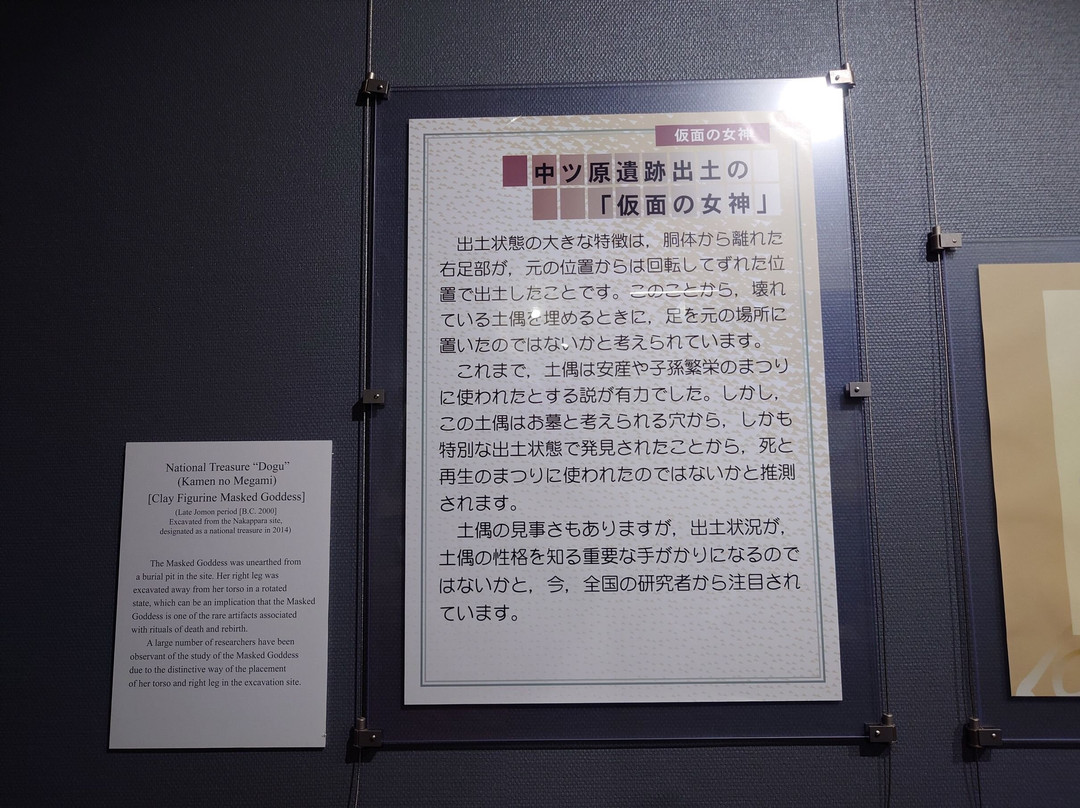 仮面の女神
中ツ原遺跡出土の
「仮面の女神」
出土状態の大きな特徴は，胴体から離れた
右足部が，元の位置からは回転してずれた位
置で出土したことです。このことから，壊れ
ている土偶を埋めるときに，足を元の場所に
置いたのではないかと考えられています。
これまで，土偶は安産や子孫繁栄のまつり
に使われたとする説が有力でした。しかし，
この土偶はお墓と考えられる穴から，しかも
特別な出土状態で発見されたことから，死と
再生のまつりに使われたのではないかと推測
されます。
土偶の見事さもありますが，出土状況が，
土偶の性格を知る重要な手がかりになるので
はないかと，今，全国の研究者から注目され
ています。
National Treasure “Dogu”
(Kamen no Megami)
[Clay Figurine Masked Goddess]
(Late Jomon period [B.C. 2000]
Excavated from the Nakappara site,
designated as a national treasure in 2014)
The Masked Goddess was unearthed from
a burial pit in the site. Her right leg was
excavated away from her torso in a rotated
state, which can be an implication that the Masked
Goddess is one of the rare artifacts associated
with rituals of death and rebirth.
A large number of researchers have been
observant of the study of the Masked Goddess
due to the distinctive way of the placement
of her torso and right leg in the excavation site.